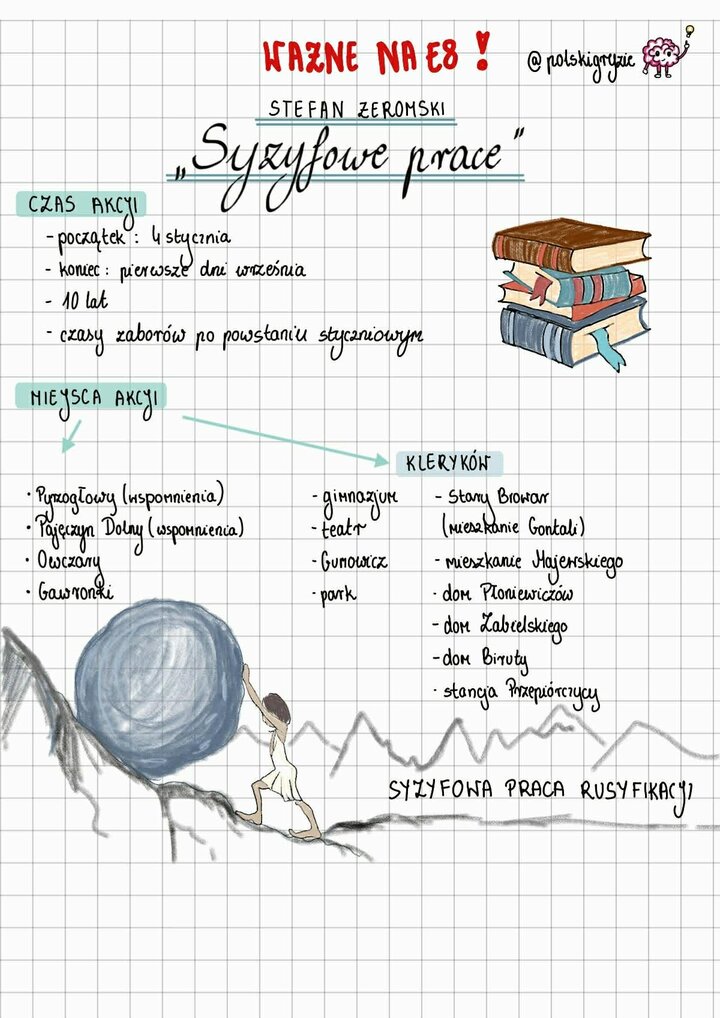 WAŻNE NA E8 !
@polskigryzie
STEFAN ŻEROMSKI
„Syzyfowe prace"
CZAS AKCJI
- początek : 4 stycznia
- koniec : pierwsze dni września
- 10 lat
- czasy zaborów po powstaniu styczniowym
MIEJSCA AKCJI
• Pyzogłowy (wspomnienia)
• Pajęczyn Dolny (wspomnienia)
• Owczary
• Gawronki
KLERYKÓW
- gimnazjum
- teatr
- Gumowicz
- park
- Stary Browar
(mieszkanie Gontali)
- mieszkanie Majewskiego
- dom Płoniewiczów
- dom Zabielskiego
- dom Biruty
- stancja Przepiórzycy
SYZYFOWA PRACA RUSYFIKACJI